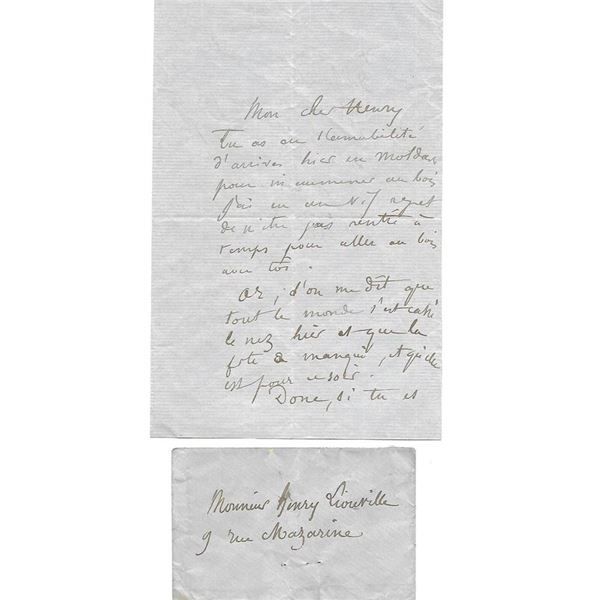 Mon cher Henry
Tu as eu l'amabilité
d'arriver hier en
pour m'emmener au bois
J'ai eu un vif regret
de n'être pas rentré à
temps pour aller au bois
avec toi.
Or, l'on me dit que
tout le monde s'est cassé
le nez hier et que la
fête a manqué, et qu'elle
est pour ce soir.
Donc, si tu es
Monsieur Henry Liouville
9 rue Mazarine